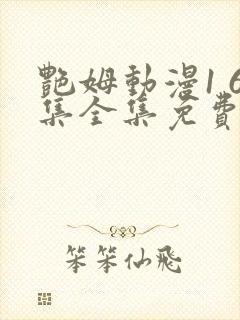 艷姆動漫16
集全集免費
笨笨仙飛